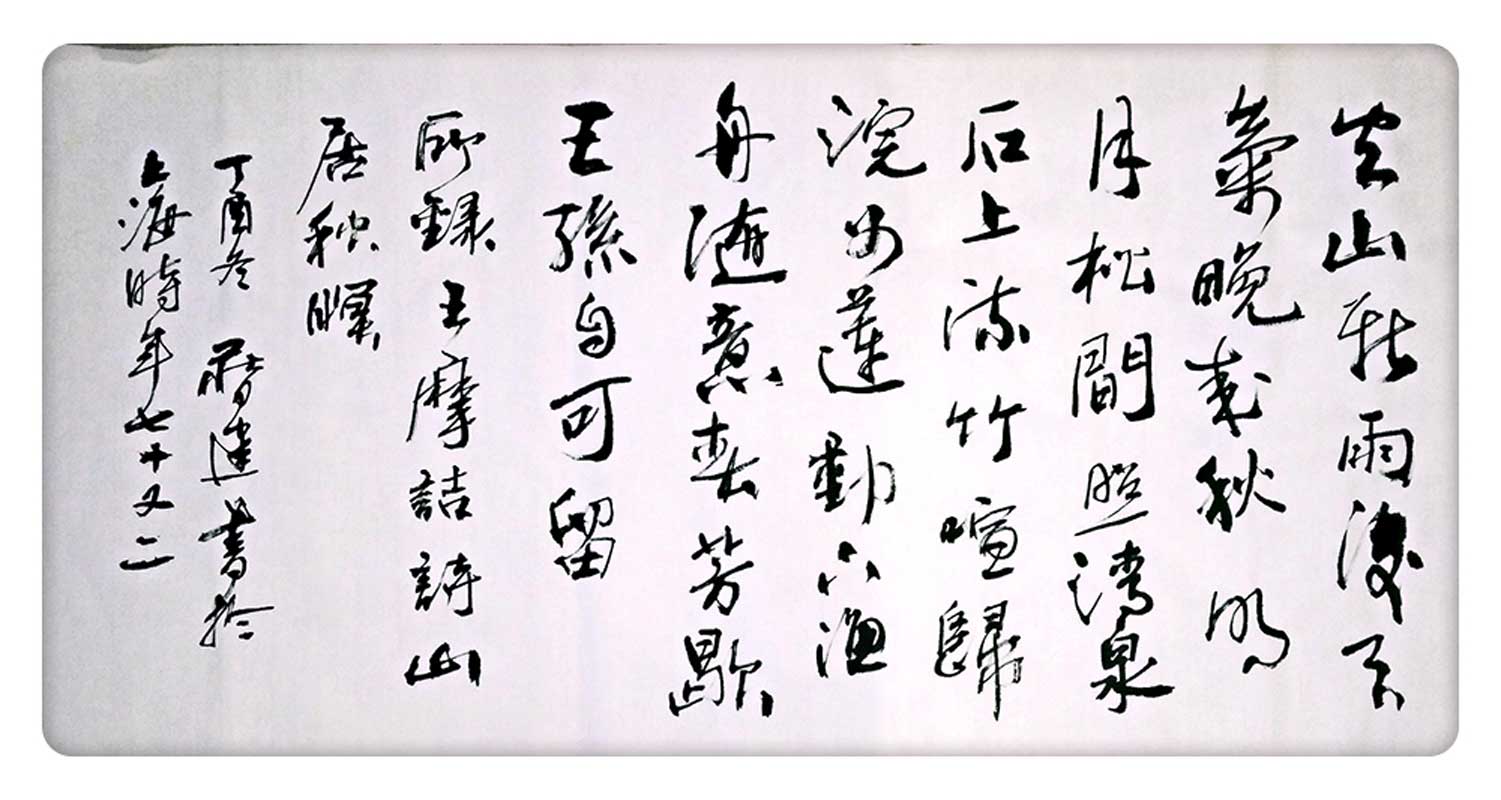 空山新雨後天
氣晚來秋明
月松間照清泉
石上流竹喧歸
浣女蓮動下漁
舟隨意春芳歇
王孫自可留
所録王摩詰詩山
居秋暝
丁酉冬 書於
上海時年七十又二